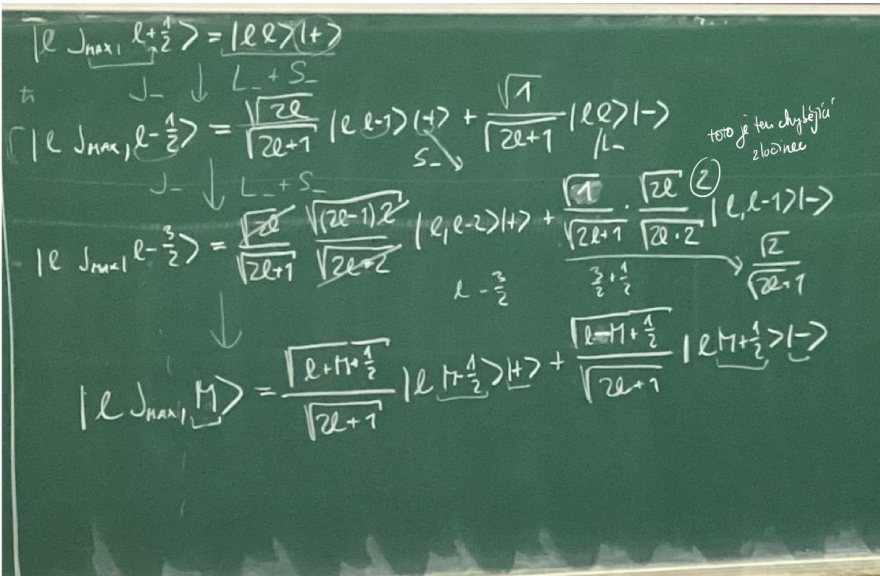 |l J_MAX, l+1/2> = |l l>|+>
J_- ↓ L_- + S_-
ħ
|l J_MAX, l-1/2> = √(2l)/√(2l+1) |l l-1>|+> + √1/√(2l+1) |l l>|->
S_- ↘ L_-
toto je ten chybějící
zločinec
J_- ↓ L_- + S_-
|l J_MAX, l-3/2> = √(2l)/√(2l+1) √((2l-1)2)/√(2l·2) |l, l-2>|+> + √1/√(2l+1) · √(2l)/√(2l·2) (2) |l, l-1>|->
l - 3/2
3/2 + 1/2
√2/√(2l+1)
↓
|l J_MAX, M> = √(l+M+1/2)/√(2l+1) |l M-1/2>|+> + √(l-M+1/2)/√(2l+1) |l M+1/2>|->